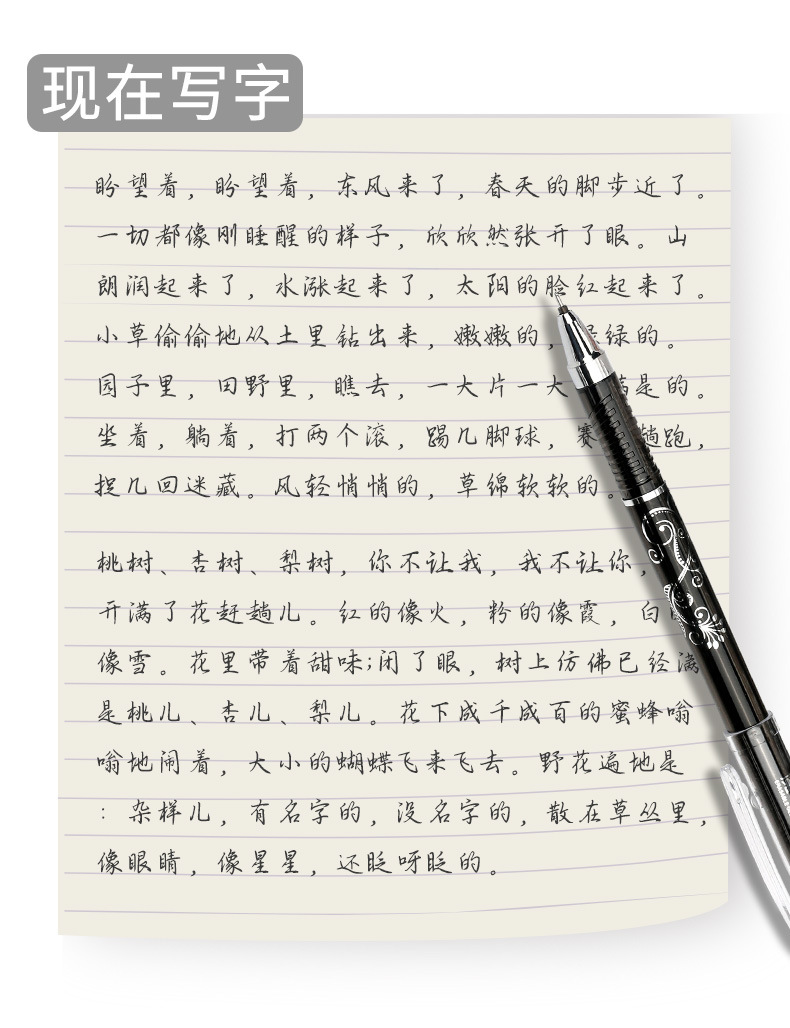 现在写字
盼望着，盼望着，东风来了，春天的脚步近了。
一切都像刚睡醒的样子，欣欣然张开了眼。山
朗润起来了，水涨起来了，太阳的脸红起来了。
小草偷偷地从土里钻出来，嫩嫩的，绿的。
园子里，田野里，瞧去，一大片一大是的。
坐着，躺着，打两个滚，踢几脚球，赛趟跑，
捉几回迷藏。风轻悄悄的，草绵软软的。
桃树、杏树、梨树，你不让我，我不让你，
开满了花赶趟儿。红的像火，粉的像霞，白
像雪。花里带着甜味;闭了眼，树上仿佛已经满
是桃儿、杏儿、梨儿。花下成千成百的蜜蜂嗡
嗡地闹着，大小的蝴蝶飞来飞去。野花遍地是
：杂样儿，有名字的，没名字的，散在草丛里，
像眼睛，像星星，还眨呀眨的。